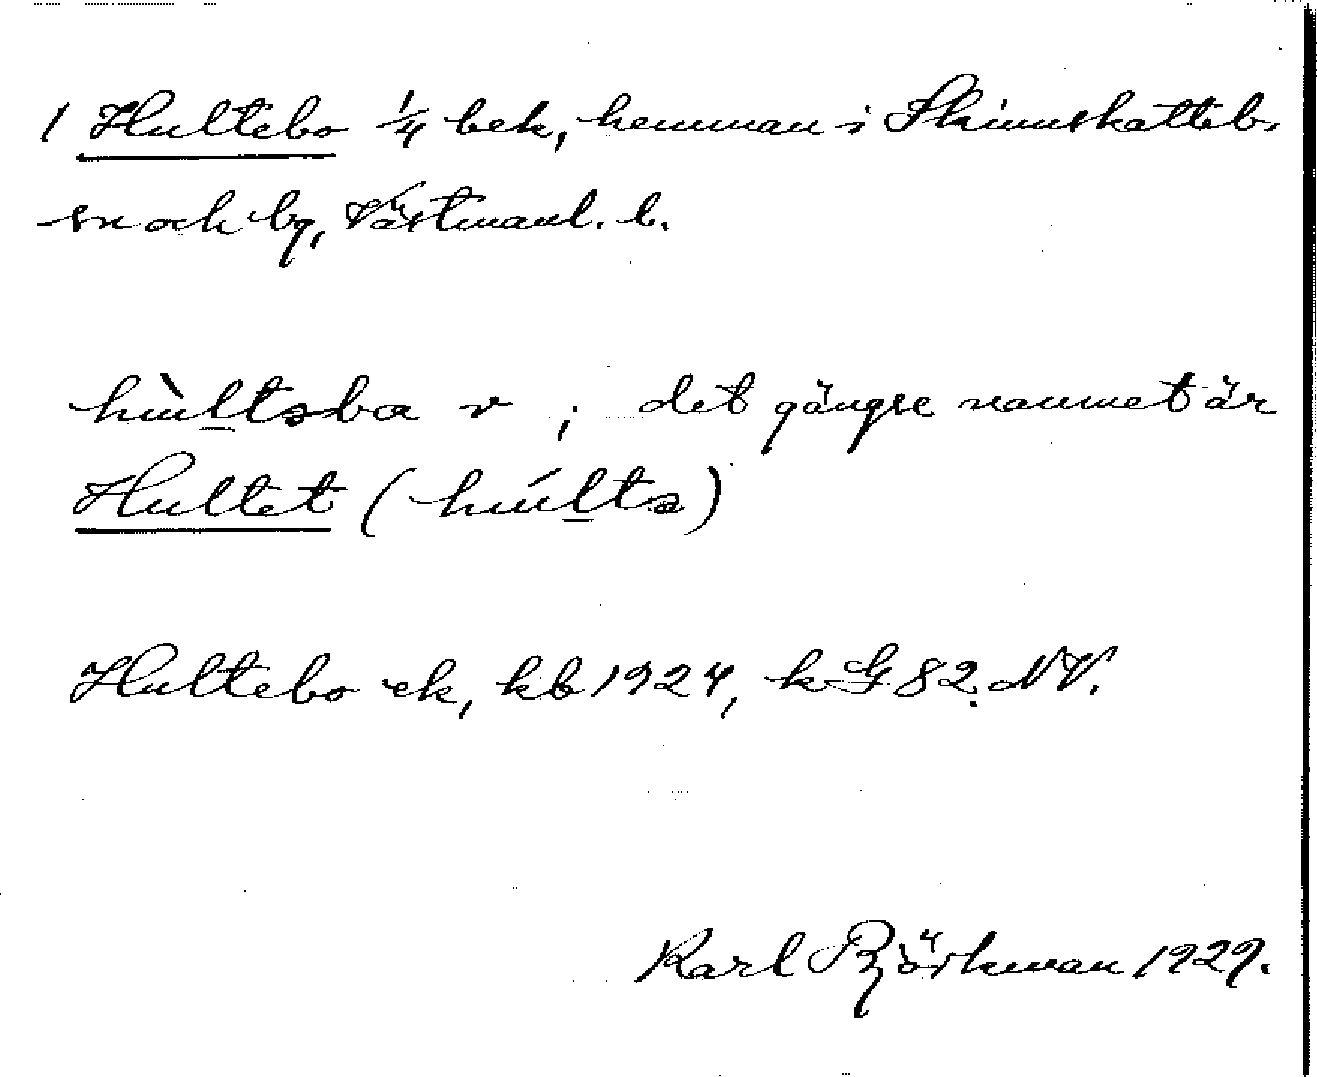 1 Hultebo 1/4 bek, hemman i Skinnskatteb.
sn och bg, Västmanl. l.
hùltəba v ; det gängse namnet är
Hultet (húltə)
Hultebo ek, kb 1924, k G 82. NV.
Karl Björkman 1929.